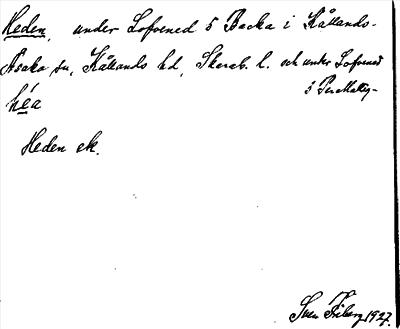 Heden, under Lofvened 5 Backa i Kållands-
Åsaka sn, Kållands hd, Skarab. l. och under Lofvened
3 PerMatts-
héa
Heden ek.
Sven Friberg 1927.